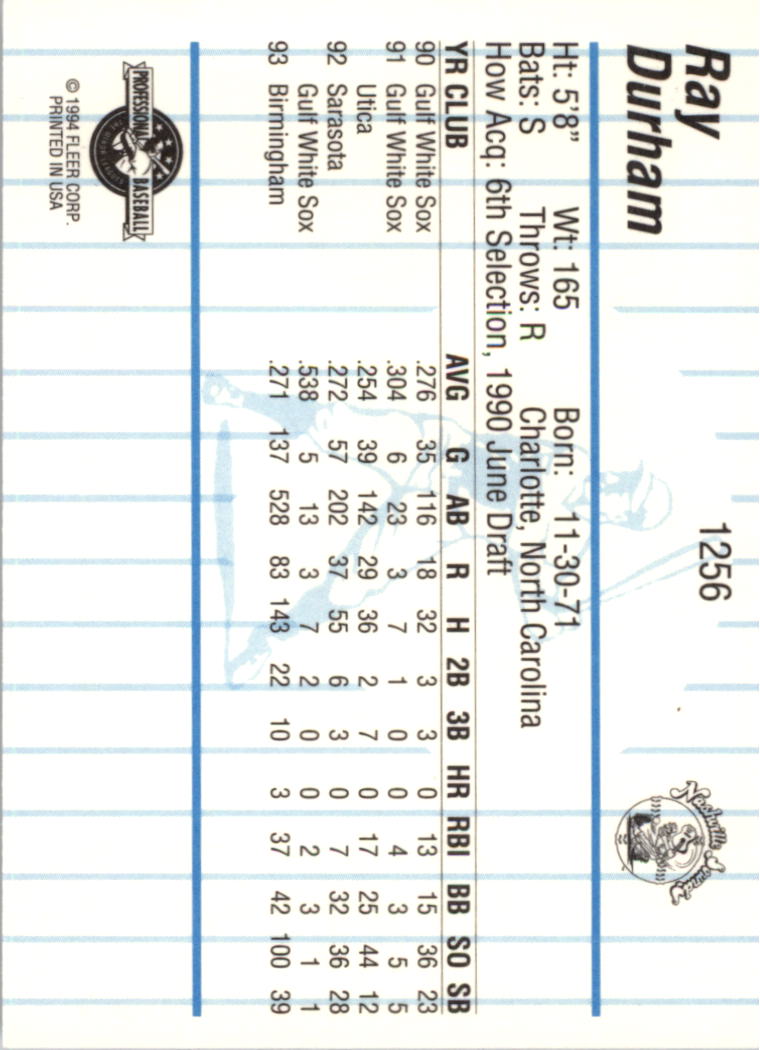 Ray
Durham
1256
Nashville Sounds
Ht: 5'8" Wt: 165 Born: 11-30-71
Bats: S Throws: R Charlotte, North Carolina
How Acq: 6th Selection, 1990 June Draft
YR CLUB AVG G AB R H 2B 3B HR RBI BB SO SB
90 Gulf White Sox .276 35 116 18 32 3 3 0 13 15 36 23
91 Gulf White Sox .304 6 23 3 7 1 0 0 4 3 5 5
Utica .254 39 142 29 36 2 7 0 17 25 44 12
92 Sarasota .272 57 202 37 55 6 3 0 7 32 36 28
Gulf White Sox .538 5 13 3 7 2 0 0 2 3 1 1
93 Birmingham .271 137 528 83 143 22 10 3 37 42 100 39
PROFESSIONAL BASEBALL
© 1994 FLEER CORP.
PRINTED IN USA